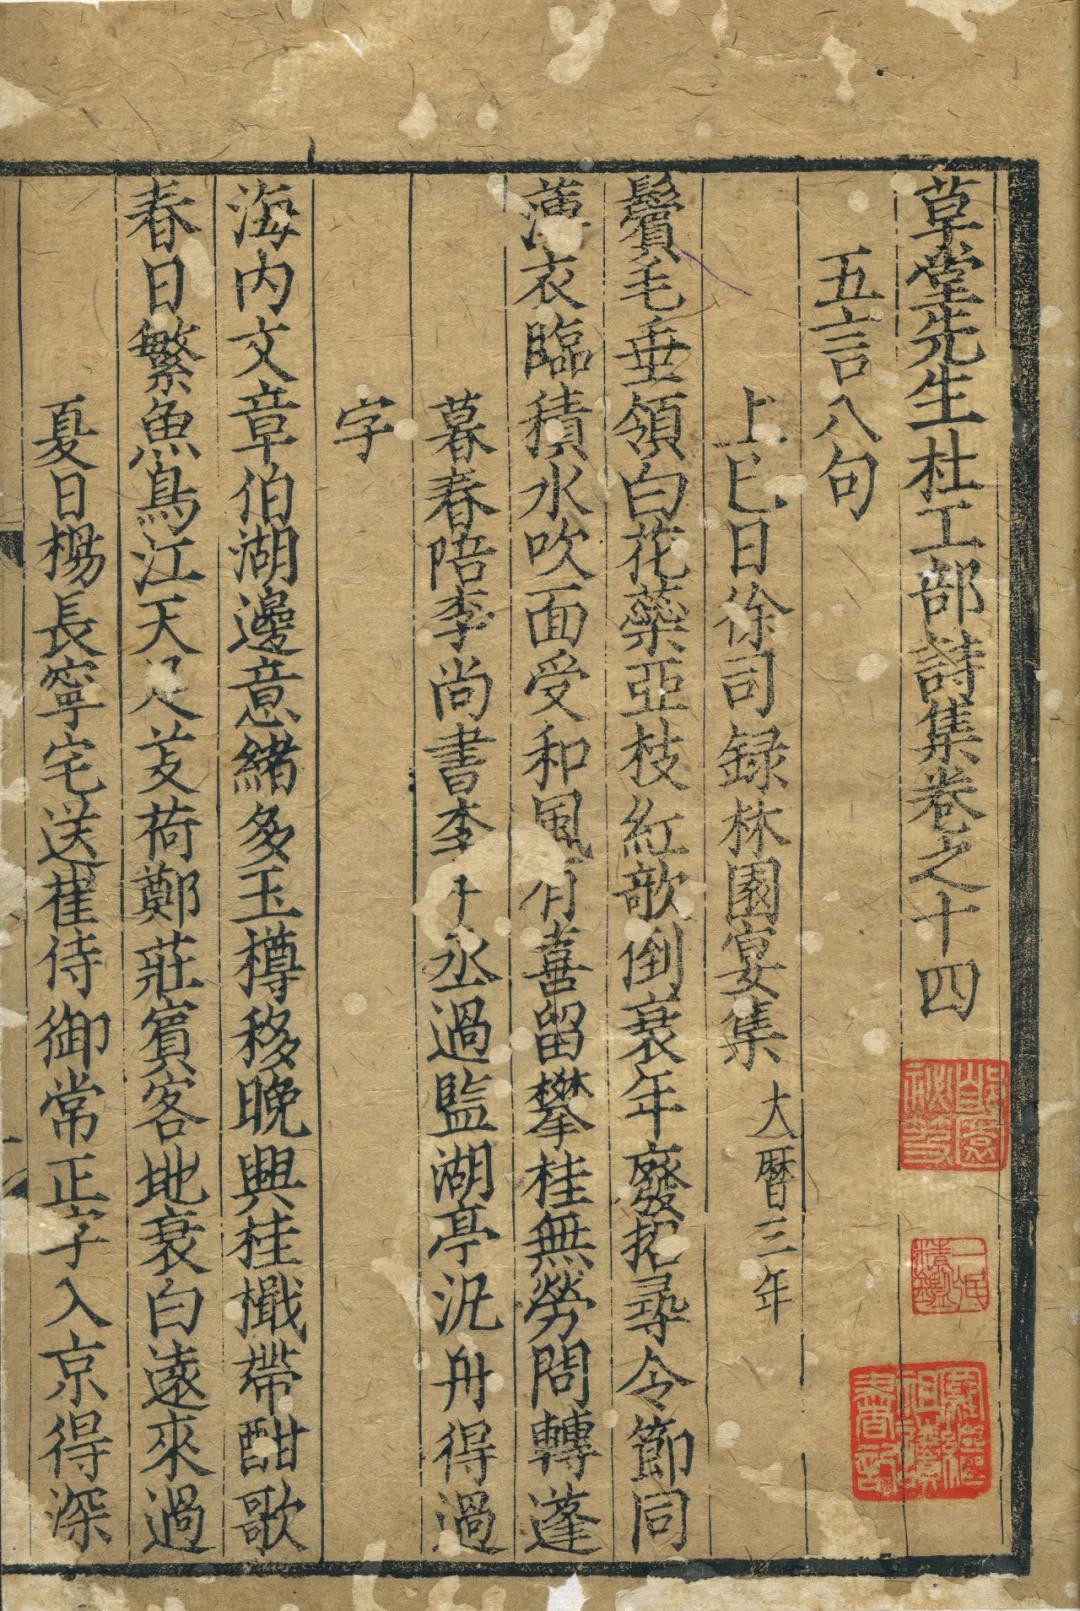 草堂先生杜工部詩集卷之十四
五言八句
上巳日徐司録林園宴集 大曆三年
鬢毛垂領白花藥亞枝紅欹倒衰年廢招尋令節同
薄衣臨積水吹面受和風有喜留攀桂無勞問轉蓬
暮春陪李尚書李中丞過監湖亭汎舟得過
字
海内文章伯湖邊意緒多玉樽移晚興桂檝帶酣歌
春日繁魚鳥江天足芰荷鄭莊賓客地衰白遠來過
夏日楊長寧宅送崔侍御常正字入京得深